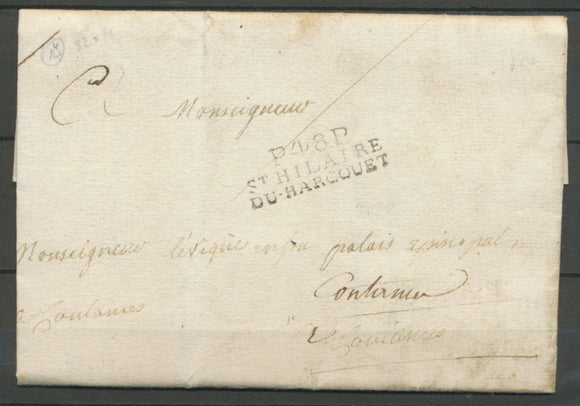 Monseigneur
P.48.P
ST HILAIRE
DU-HARCOUET
Monseigneur lévêque en son palais Episcopal
a Coutances
a Coutances